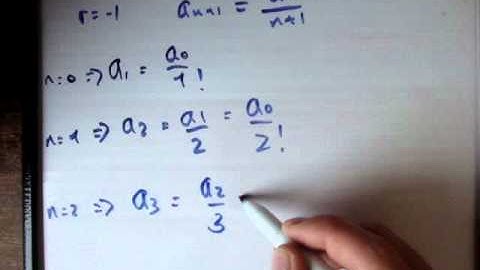 r=-1 a_{n+1} = a/n+1
n=0 => a_1 = a_0/1!
n=1 => a_2 = a_1/2 = a_0/2!
n=2 => a_3 = a_2/3